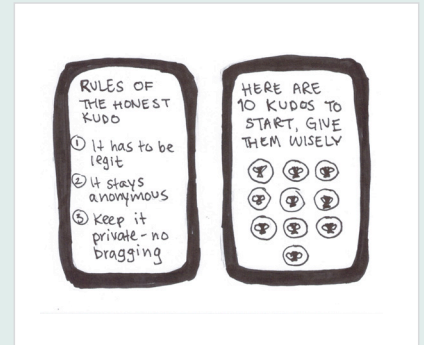 RULES OF
THE HONEST
KUDO
① It has to be
legit
② It stays
anonymous
③ Keep it
private - no
bragging
HERE ARE
10 KUDOS TO
START, GIVE
THEM WISELY